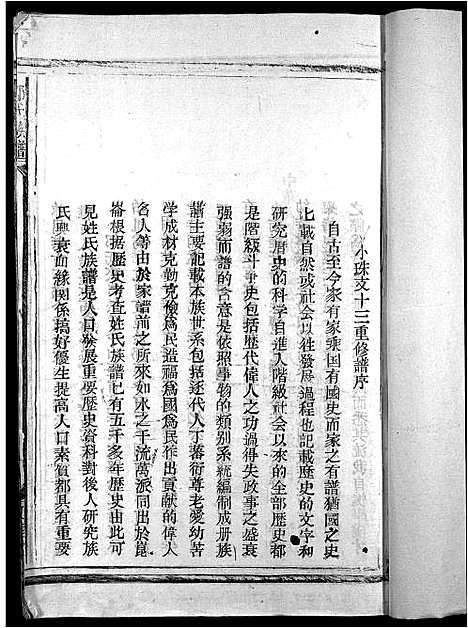 小珠支十三重修譜序
自古至今家有家乘国有國史而家之有譜猶國之史
上載自然或社会以往發展过程也記載歷史的文字和
研究歷史的科学自進入階級社会以來的全部歷史都
是階級斗爭史包括歷代偉人之功過得失政事之盛衰
强弱而譜的含意是依照事物的類别系統編制成册族
譜主要記載本族世系包括逐代人丁蕃衍尊老愛幼苦
学成材克勤克儉為民造福為國為民作出貢献的偉人
名人等由於家譜前之所來如水之千流萬派同出於崑
崙根据歷史考查姓氏族譜已有五千多年歷史由此可
見姓氏族譜是人口發展重要歷史資料對後人研究族
氏興衰血緣関係搞好優生提高人口素質都具有重要